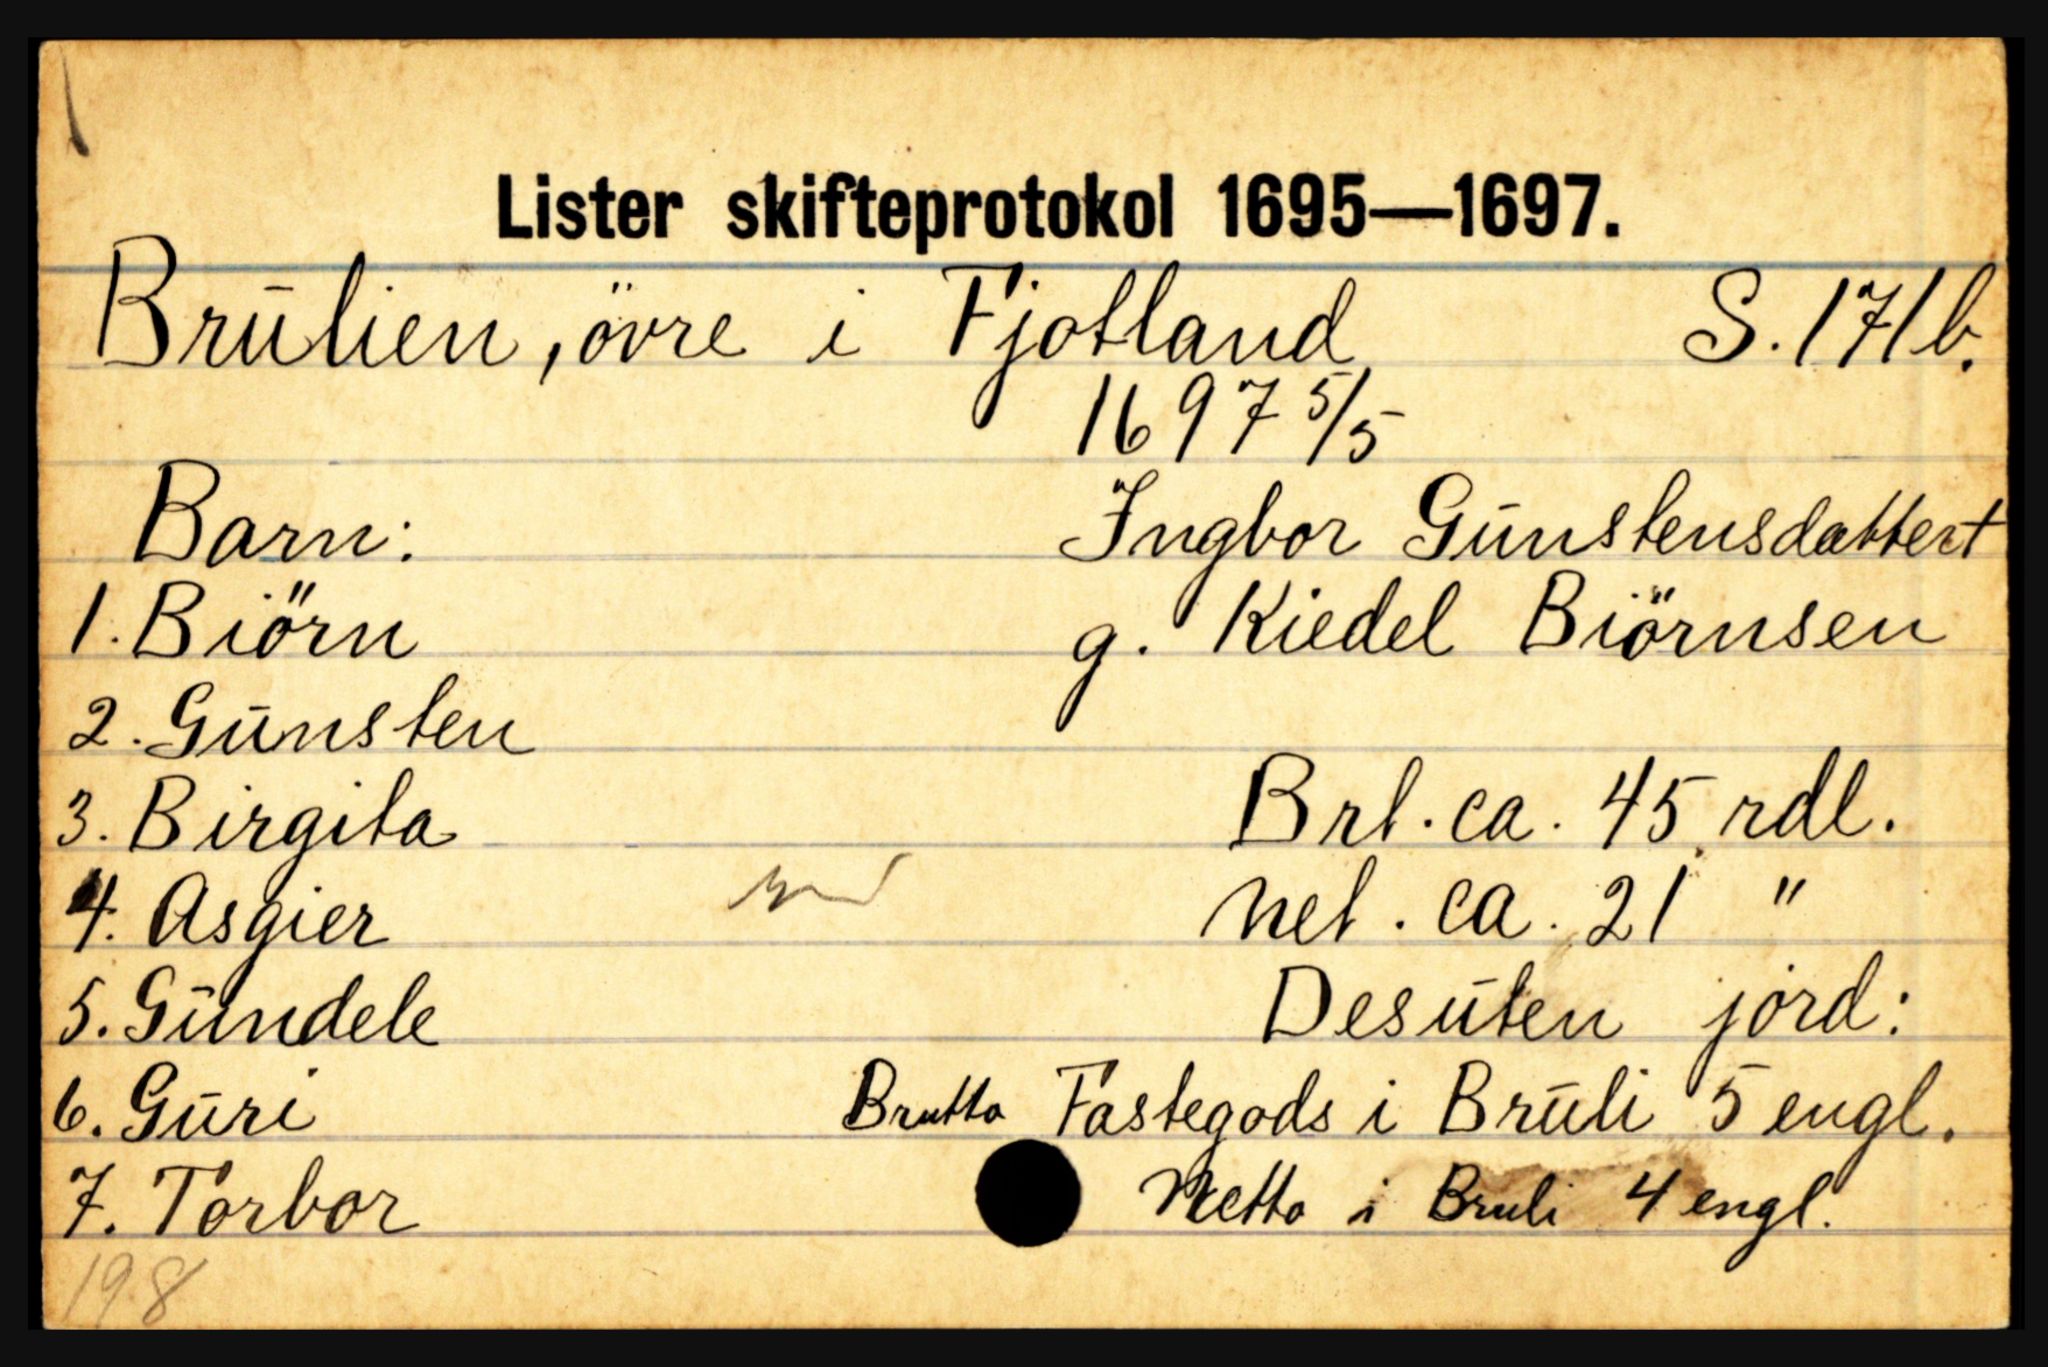 Lister skifteprotokol 1695—1697.
Brūlien, övre i Fjotland S. 171b.
1697 5/5
Barn: Ingbor Gūnstensdatter†
1. Biörn g. Kiedel Biörnsen
2. Gūnsten
3. Birgita Brt. ca. 45 rdl.
4. Asgier Net. ca. 21 "
5. Gūndele Desūten jord:
6. Gūri Brutto Fastegods i Brūli 5 engl.
7. Torbor Netto i Bruli 4 engl.
198